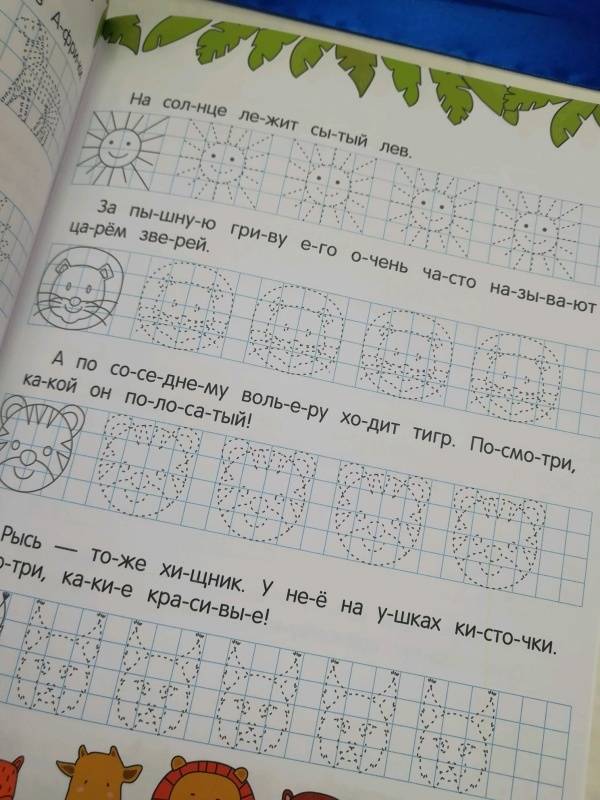 А-фрики
На сол-нце ле-жит сы-тый лев.
За пы-шну-ю гри-ву е-го о-чень ча-сто на-зы-ва-ют
ца-рём зве-рей.
А по со-се-дне-му воль-е-ру хо-дит тигр. По-смо-три,
ка-кой он по-ло-са-тый!
Рысь — то-же хи-щник. У не-ё на у-шках ки-сто-чки.
о-три, ка-ки-е кра-си-вы-е!